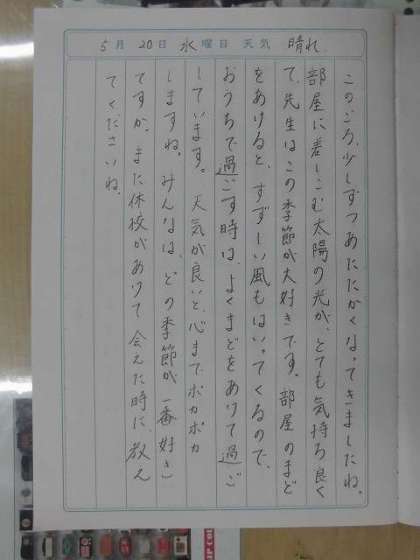 5月20日 水曜日 天気 晴れ
このごろ、少しずつあたたかくなってきましたね。
部屋に差しこむ太陽の光が、とても気持ち良く
て、先生はこの季節が大好きです。部屋のまど
をあけると、すずしい風もはいってくるので、
おうちで過ごす時は、よくまどをあけて過ご
しています。天気が良いと、心までポカポカ
しますね。みんなは、どの季節が一番好き
ですか。また休校があけて会えた時に、教え
てくださいね。